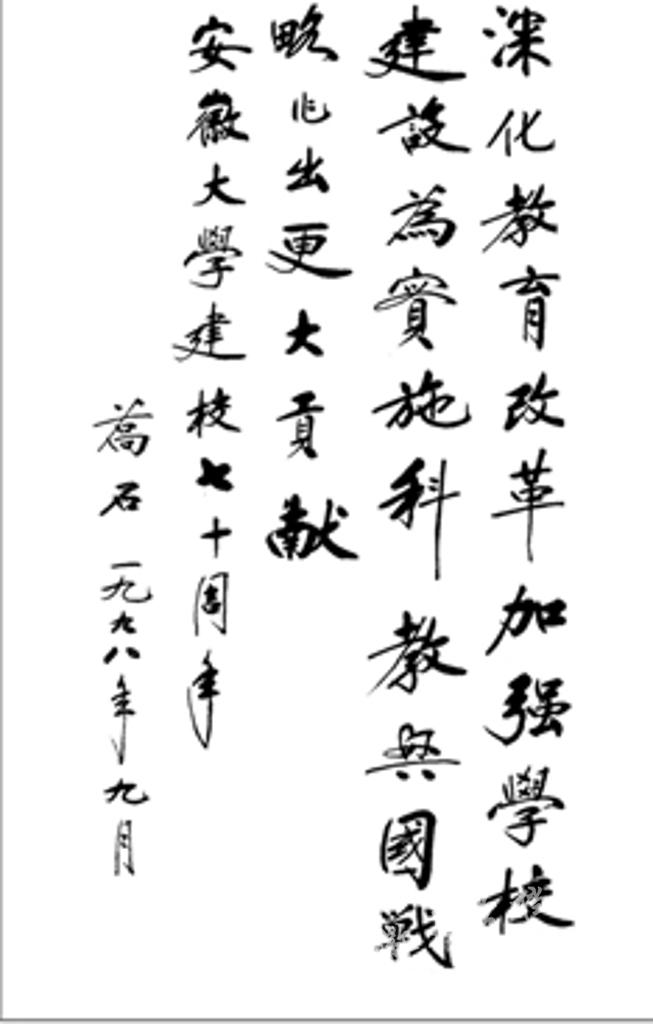 深化教育改革加强學校
建設為實施科教興國戦
略作出更大貢献
安徽大學建校七十周年
喬石 一九九八年九月